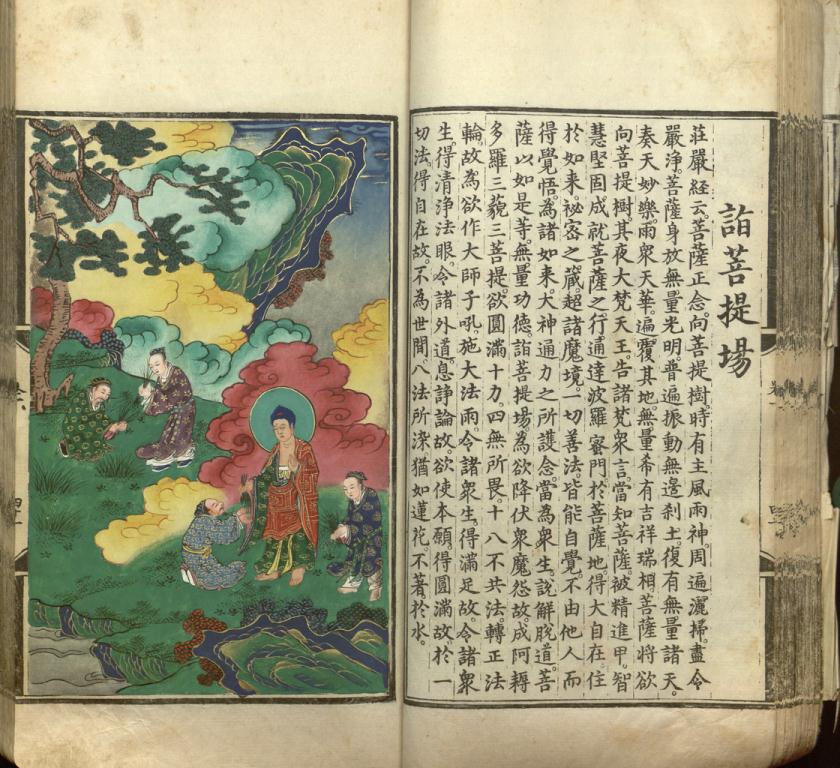 詣菩提場
莊嚴經云。菩薩正念。向菩提樹。時有主風雨神。周遍灑掃。盡令
嚴淨。菩薩身放無量光明。普遍振動無邊剎土。復有無量諸天。
奏天妙樂。雨眾天華。遍覆其地。無量希有吉祥瑞相。菩薩將欲
向菩提樹。其夜大梵天王。告諸梵眾言。當知菩薩被精進甲。智
慧堅固。成就菩薩之行。通達波羅蜜門。於菩薩地得大自在。住
於如來。祕密之藏。超諸魔境。一切善法。皆能自覺。不由他人而
得覺悟。為諸如來。大神通力之所護念。當為眾生。說解脫道。菩
薩以如是等。無量功德。詣菩提場。為欲降伏眾魔怨故。成阿耨
多羅三藐三菩提。欲圓滿十力。四無所畏。十八不共法。轉正法
輪故。為欲作大師子吼。施大法雨。令諸眾生。得滿足故。令諸眾
生。得清淨法眼。令諸外道。息諍論故。欲使本願。得圓滿故。於一
切法。得自在故。不為世間。八法所染。猶如蓮花。不著於水。